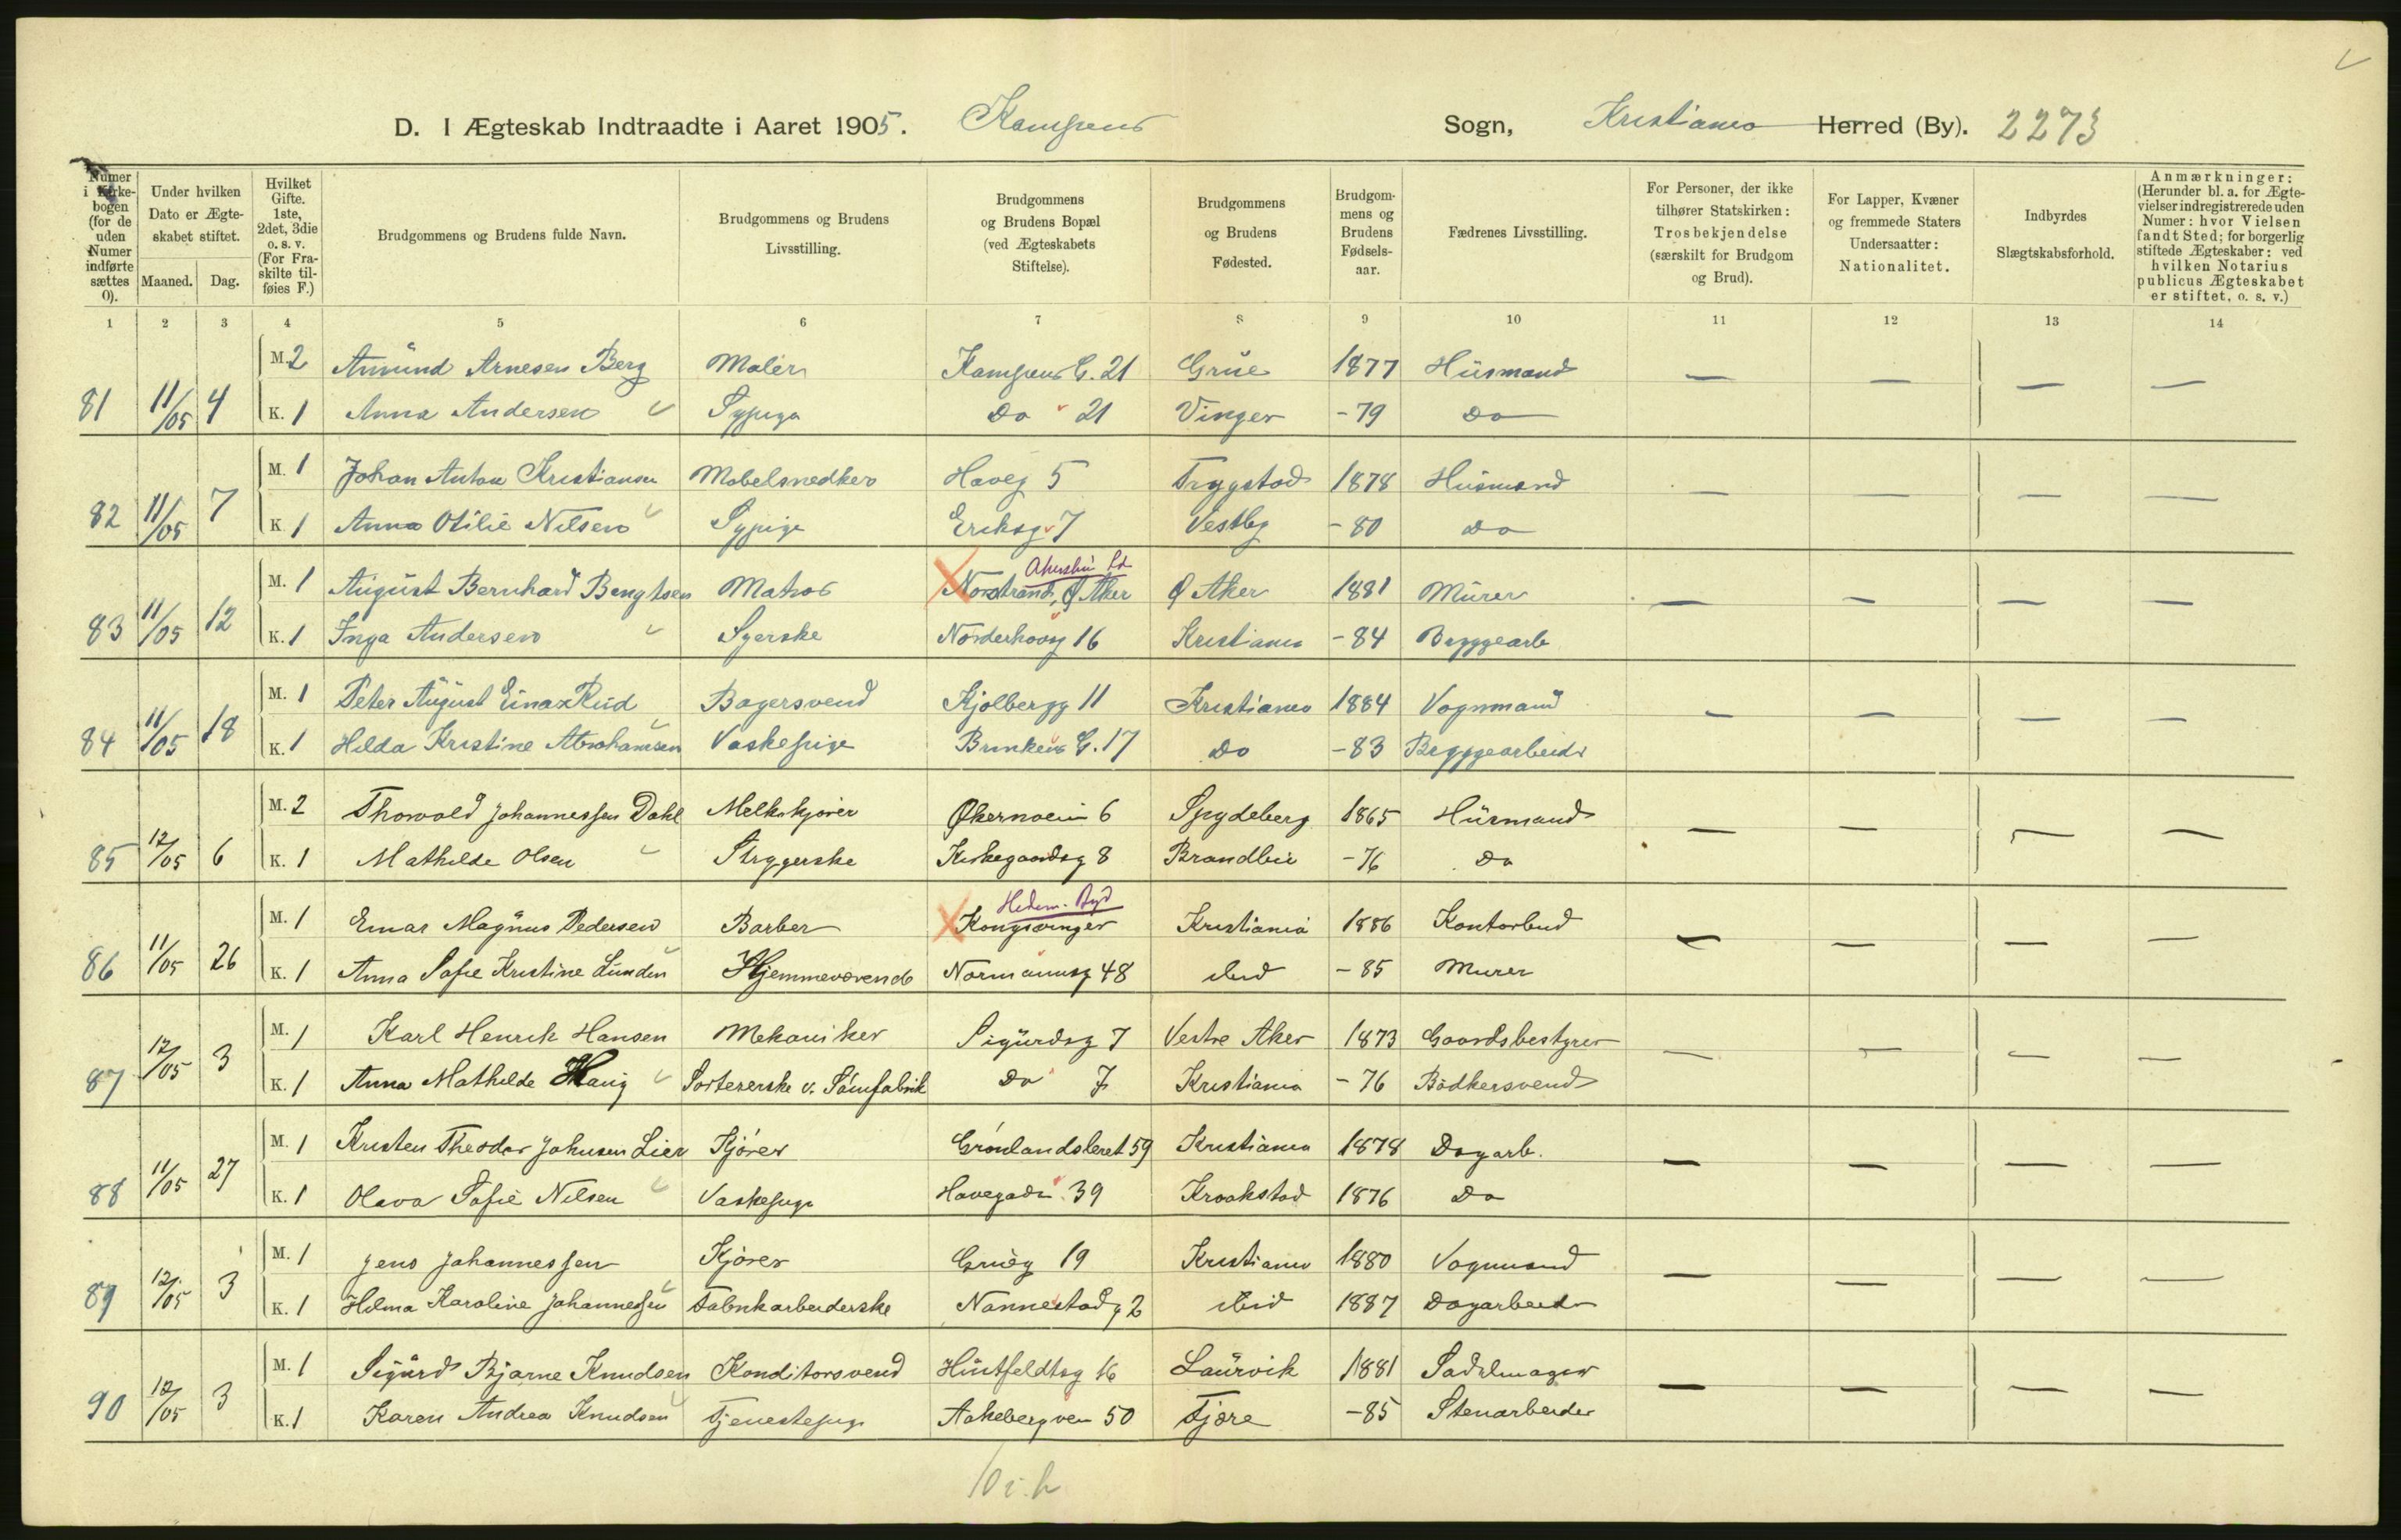 D. I Ægteskab Indtraadte i Aaret 1905. Kampens Sogn, Kristiania Herred (By). 2273
Numer i Kirkebogen (for de uden Numer indførte sættes 0). Under hvilken Dato er Ægteskabet stiftet. Maaned. Dag. Hvilket Gifte. 1ste, 2det, 3die o. s. v. (For Fraskilte tilføies F.) Brudgommens og Brudens fulde Navn. Brudgommens og Brudens Livsstilling. Brudgommens og Brudens Bopæl (ved Ægteskabets Stiftelse). Brudgommens og Brudens Fødested. Brudgommens og Brudens Fødselsaar. Fædrenes Livsstilling. For Personer, der ikke tilhører Statskirken: Trosbekjendelse (særskilt for Brudgom og Brud). For Lapper, Kvæner og fremmede Staters Undersaatter: Nationalitet. Indbyrdes Slægtskabsforhold. Anmærkninger: (Herunder bl. a. for Ægtevielser indregistrerede uden Numer: hvor Vielsen fandt Sted; for borgerlig stiftede Ægteskaber: ved hvilken Notarius publicus Ægteskabet er stiftet, o. s. v.)
1 2 3 4 5 6 7 8 9 10 11 12 13 14
M. 2 Amund Arnesen Berg Maler Kampens G. 21 Grue 1877 Husmand — — — —
81 11/05 4 K. 1 Anna Andersen Sypige Do 21 Vinger -79 Do
M. 1 Johan Anton Kristiansen Møbelsnedker Haveg 5 Trygstad 1878 Husmand — — — —
82 11/05 7 K. 1 Anna Otilie Nilsen Sypige Eriksg 7 Vestby -80 Do
M. 1 August Bernhard Bengtsen Matros Nordstrand, Ø Aker Ø Aker 1881 Murer — — — —
83 11/05 12 K. 1 Inga Andersen Syerske Norderhovsg 16 Kristiania -84 Bryggearb
M. 1 Peter August Einar Rud Bagersvend Kjølbergg 11 Kristiania 1884 Vognmand — — — —
84 11/05 18 K. 1 Hilda Kristine Abrahamsen Vaskepige Brinkens G. 17 Do -83 Bryggearbeider
M. 2 Thorvald Johannessen Dahl Melkekjører Økernveien 6 Spydeberg 1865 Husmand — — — —
85 12/05 6 K. 1 Mathilde Olsen Strygerske Kirkegaardsg 8 Brandbu -76 Do
Hedem.
M. 1 Einar Magnus Pedersen Barber Kongsvinger Kristiania 1886 Kontorbud — — — —
86 11/05 26 K. 1 Anna Sofie Kristine Lunden Hjemmeværende Normannsg 48 ibid -85 Murer
M. 1 Karl Henrik Hansen Mekaniker Sigurdsg 7 Vestre Aker 1873 Gaardsbestyrer — — — —
87 12/05 3 K. 1 Anna Mathilde Haug Sortererske v. Sømfabrik Do 7 Kristiania -76 Bødkersvend
M. 1 Kristen Theodor Johnsen Lier Kjører Grønlandsleret 59 Kristiania 1878 Dagarb. — — — —
88 11/05 27 K. 1 Olava Sofie Nilsen Vaskepige Havegaden 39 Kraakstad 1876 Do
M. 1 Jens Johannessen Kjører Grueg 19 Kristiania 1880 Vognmand — — — —
89 12/05 3 K. 1 Hilma Karoline Johannessen Fabrikarbeiderske Nannestadg 2 ibid 1887 Dagarbeider
M. 1 Sigurd Bjarne Knudsen Konditorsvend Huitfeldtsg 16 Laurvik 1881 Sadelmager — — — —
90 12/05 3 K. 1 Karen Andrea Knudsen Tjenestepige Aakebergveien 50 Fjære -85 Stenarbeider